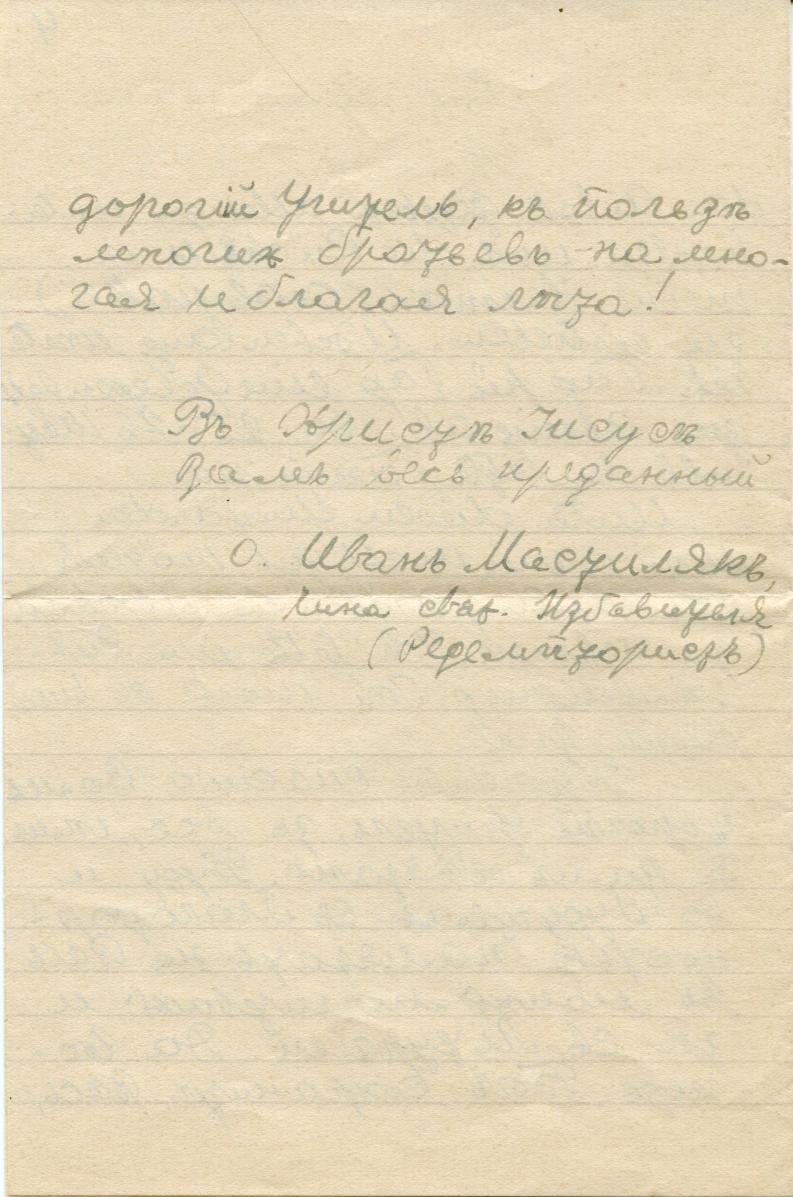 дорогій Учитель, къ пользѣ
многихъ братьевъ на мно-
гая и благая лѣта!
Въ Христѣ Іисусѣ
Вамъ весь преданный
О. Иванъ Мастилякъ,
Чина свят. Избавителя
(Редемптористъ)